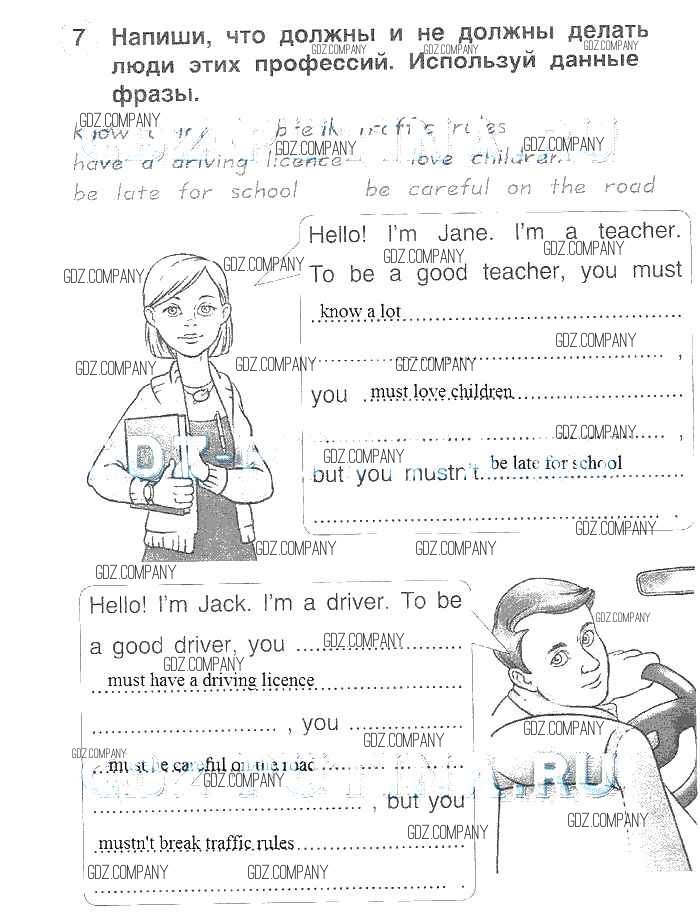 7 Напиши, что должны и не должны делать
люди этих профессий. Используй данные
фразы.
know break traffic rules
have a driving licence love children
be late for school be careful on the road
Hello! I'm Jane. I'm a teacher.
To be a good teacher, you must
know a lot
,
you must love children
,
but you mustn't be late for school
.
Hello! I'm Jack. I'm a driver. To be
a good driver, you
must have a driving licence
, you
must be careful on the road
, but you
mustn't break traffic rules
.
GDZ.COMPANY